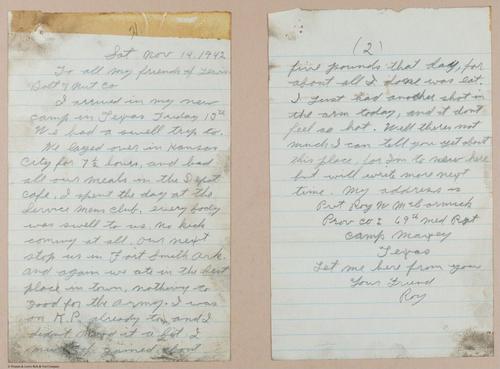 Sat Nov 14, 1942
To all my friends of
Bolt & Nut Co
I arrived in my new
camp in Texas Friday 13th
We had a swell trip to.
We layed over in Kansas
City for 7½ hours, and had
all our meals in the Depot
cafe. I spent the day at the
Service Mens Club, every body
was swell to us. No kick
coming at all. Our next
stop us in Fort Smith Ark.
and again we ate in the best
place in town, nothing to
good for the Army. I was
on K.P. already to, and I
didn't mind it a bit I
must of gained about
(2)
five pounds that day, for
about all I done was eat.
I just had another shot in
the arm today, and it dont
feel so hot. Well theres not
much I can tell you yet about
this place, for Im to new here
but will write more next
time. My address is
Pvt Roy W McCormick
Prov Co 2 69th Med Rgt
Camp Maxey
Texas
Let me here from you
Your Friend
Roy